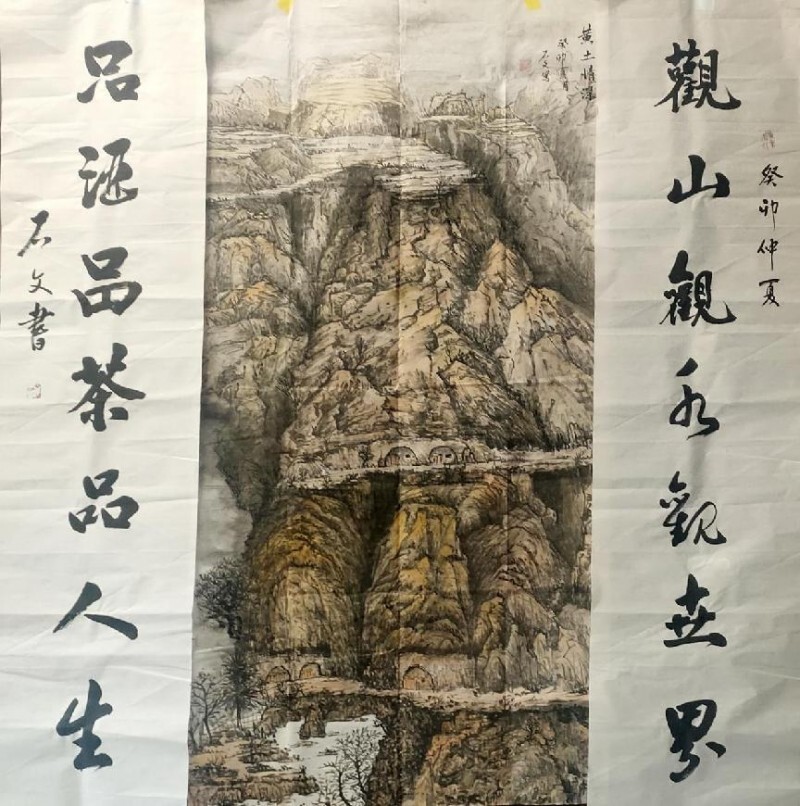 觀山觀水觀世界
癸卯仲夏
黃土情深
癸卯夏月
石文寫
品酒品茶品人生
石文書